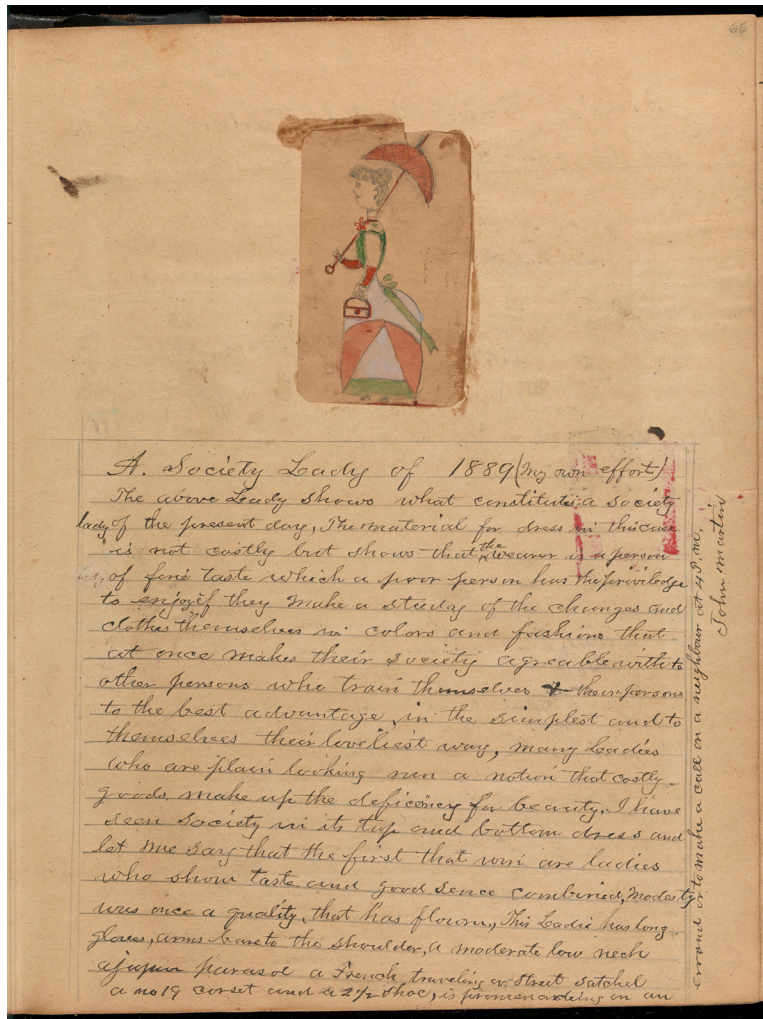 65
A. Society Lady of 1889 (my own effort)
The above Lady shows what constitutes a society
lady of the present day, The material for dress in this case
is not costly but shows that the wearer is a person
of fine taste which a poor person has the priviledge
to enjoy if they make a study of the changes and
clothe themselves in colors and fashions that
at once makes their society agreable with to
other persons who train themselves & their persons
to the best advantage, in the simplest and to
themselves their loveliest way, many Ladies
who are plain looking run a notion that costly
goods make up the deficiency for beauty. I have
seen society in its top and bottom dress and
let me say that the first that win are ladies
who show taste and good sence combined, Modesty
was once a quality, that has flown,, This Ladie has long
gloves, arms bare to the shoulder, a moderate low neck
a japan parasol a French, traveling or street satchel
a no 19 corset and a 2½ shoe, is promenading on an
errand or to make a call on a neighbour at 4 P.m.
John Martin